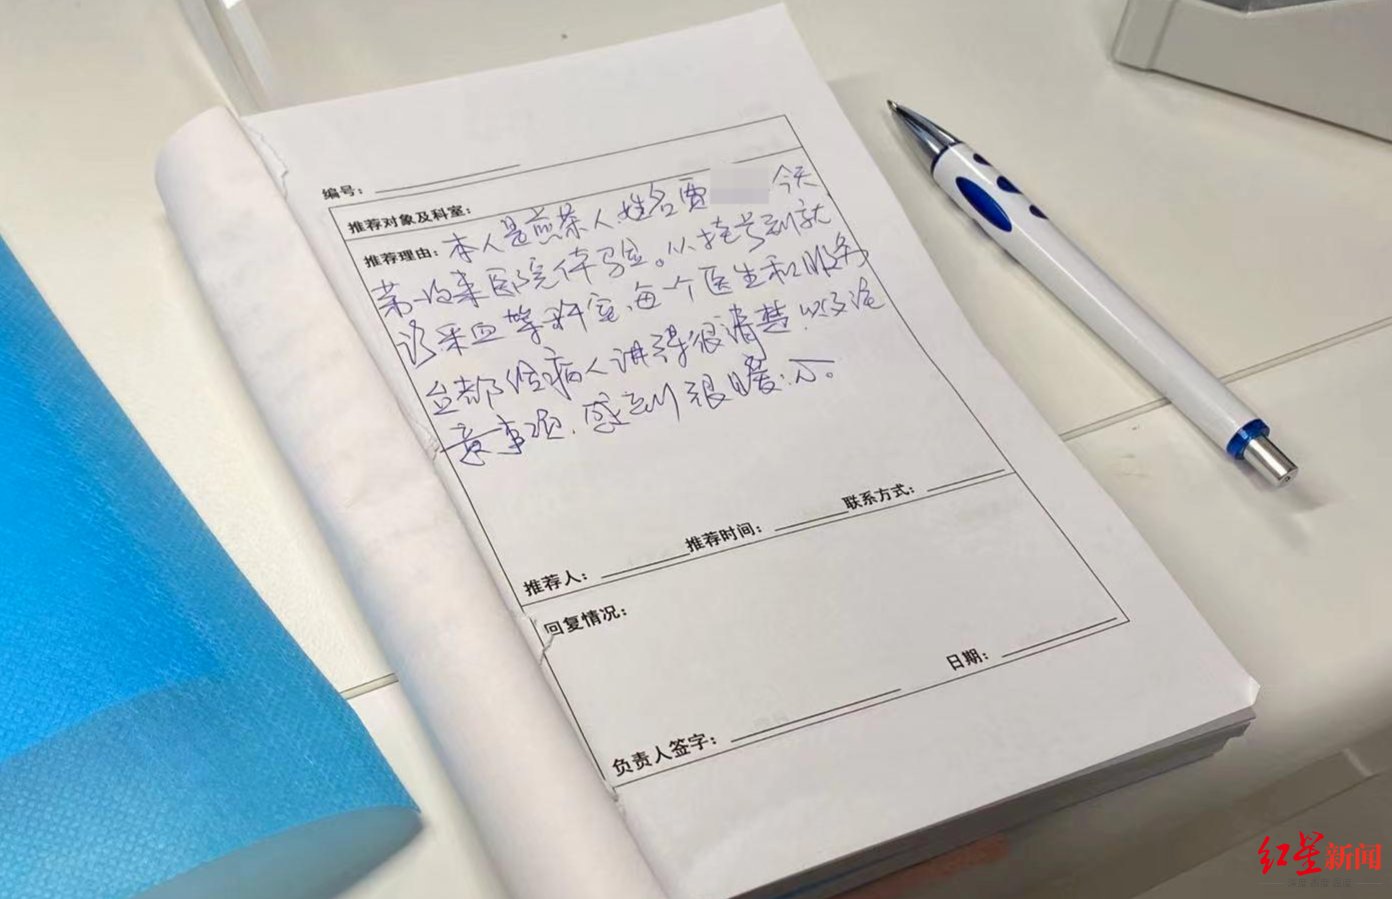 编号：
推荐对象及科室：
推荐理由：本人是煎茶人姓名费 今天
第一次来医院体验。从挂号到就
诊采血等科室，每一个医生和服务
台都给病人讲得很清楚，以及注
意事项，感到很暖心。
推荐人： 推荐时间： 联系方式：
回复情况：
日期：
负责人签字：
红星新闻
深度 态度 温度